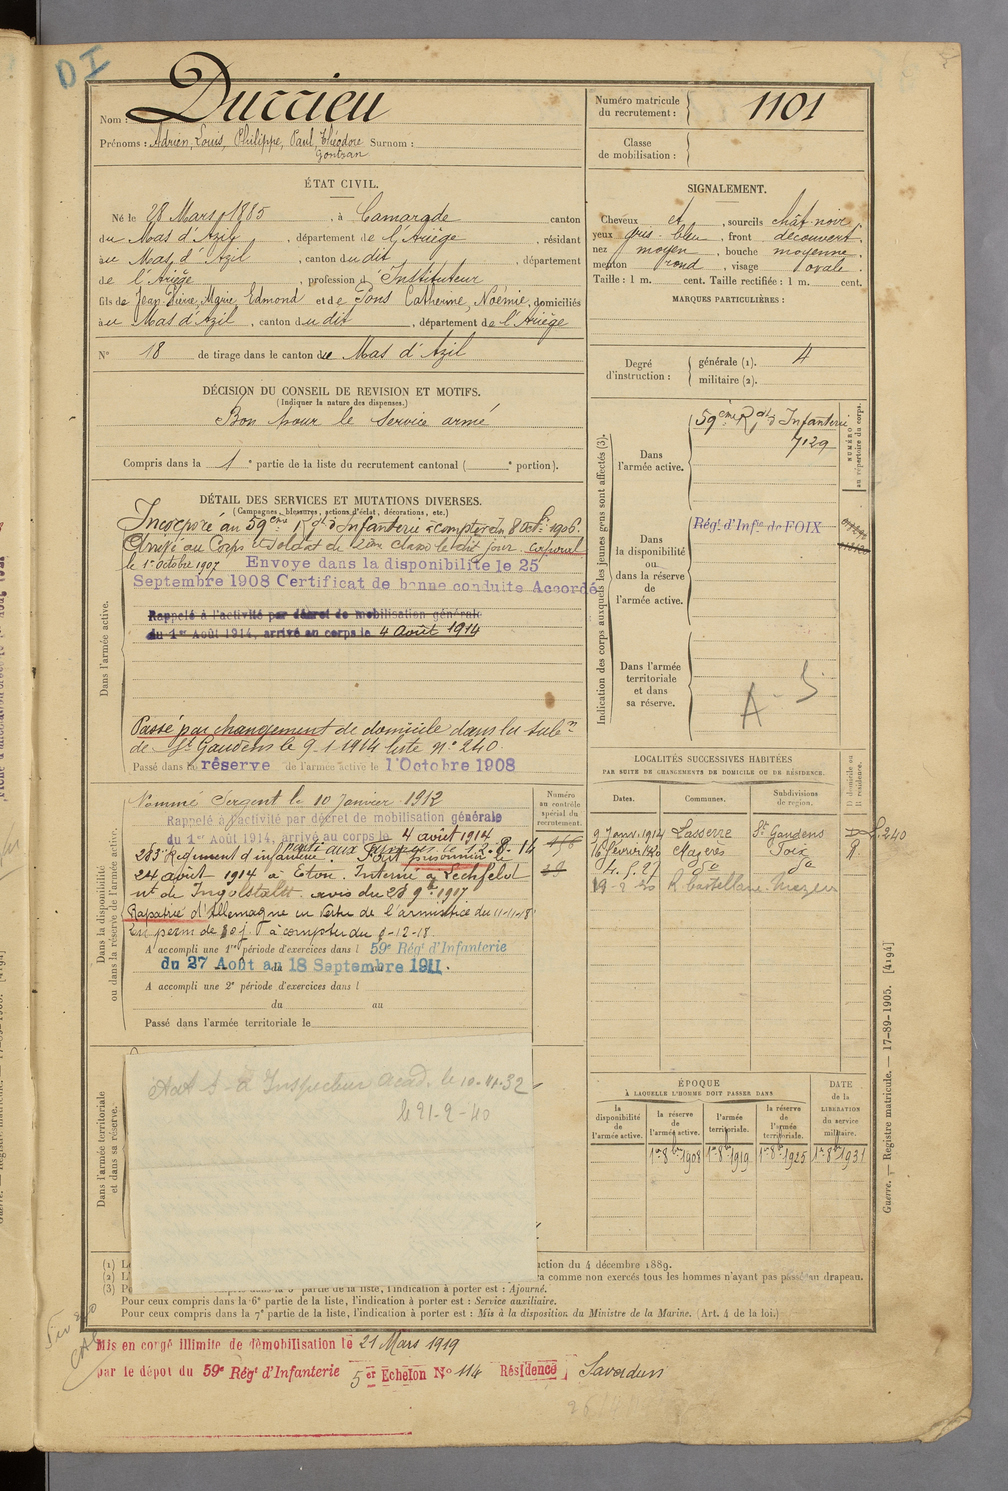 DI
Nom : Durrieu
Prénoms : Adrien, Louis, Philippe, Paul, Théodore Surnom :
Gontran
ÉTAT CIVIL.
Né le 28 Mars 1885, à Camarade canton
du Mas d'Azil, département de l'Ariège, résidant
au Mas d'Azil, canton du dit, département
de l'Ariège, profession d' Instituteur
fils de Jean Pierre, Marie Edmond et de Pons Catherine, Noémie, domiciliés
au Mas d'Azil, canton du dit, département de l'Ariège
N° 18 de tirage dans le canton du Mas d'Azil
DÉCISION DU CONSEIL DE REVISION ET MOTIFS.
(Indiquer la nature des dispenses.)
Bon pour le service armé
Compris dans la 1e partie de la liste du recrutement cantonal ( e portion).
DÉTAIL DES SERVICES ET MUTATIONS DIVERSES.
(Campagnes, blessures, actions d'éclat, décorations, etc.)
Dans l'armée active.
Incorporé au 59ème Rgt d'Infanterie à compter du 8 8bre 1906.
Arrivé au Corps et soldat de 2ème classe le dit jour. caporal
le 1er Octobre 1907 Envoye dans la disponibilite le 25
Septembre 1908 Certificat de bonne conduite Accordé
Rappelé à l'activité par décret de mobilisation générale
du 1er Août 1914, arrivé au corps le 4 août 1914
Passé par changement de domicile dans la subn
de St Gaudens le 9-1-1914 liste n° 240.
Passé dans la réserve de l'armée active le 1 Octobre 1908
Dans la disponibilité
ou dans la réserve de l'armée active.
Numéro
au contrôle
spécial du
recrutement.
Nommé Sergent le 10 Janvier 1912
Rappelé à l'activité par décret de mobilisation générale
du 1er Août 1914, arrivé au corps le 4 août 1914
283 Régiment d'infanterie. Parti aux armées le 12.8.14
Fait prisonnier le
24 août 1914 à Eton. Interné à Lechfeld
nt de Ingolstadt. avis du 28 9bre 1917
Rapatrié d'Allemagne en vertu de l'armistice du 11-11-18
A accompli une 1re période d'exercices dans l 59e Régt d'Infanterie
du 27 Août au 18 Septembre 1911.
A accompli une 2e période d'exercices dans l
du au
Passé dans l'armée territoriale le
Dans l'armée territoriale
et dans sa réserve.
Inspecteur Acad. le 10-11-32
le 21-2-40
ction du 4 décembre 1889.
a comme non exercés tous les hommes n'ayant pas passé au drapeau.
(1) L
(2) L'
(3) P 5e partie de la liste, l'indication à porter est : Ajourné.
Pour ceux compris dans la 6e partie de la liste, l'indication à porter est : Service auxiliaire.
Pour ceux compris dans la 7e partie de la liste, l'indication à porter est : Mis à la disposition du Ministre de la Marine. (Art. 4 de la loi.)
Mis en congé illimité de démobilisation le 21 Mars 1919
par le dépôt du 59e Régt d'Infanterie 5er Echelon N° 114 Résidence Saverdun
Numéro matricule
du recrutement : 1101
Classe
de mobilisation :
SIGNALEMENT.
Cheveux et, sourcils chât-noir
yeux gris-bleu, front découvert
nez moyen, bouche moyenne
menton rond, visage ovale.
Taille : 1 m. cent. Taille rectifiée : 1 m. cent.
MARQUES PARTICULIÈRES :
Degré
d'instruction :
générale (1). 4
militaire (2).
Indication des corps auxquels les jeunes gens sont affectés (3).
NUMÉRO
au répertoire du corps.
Dans
l'armée active.
59ème Rgt d'Infanterie
7129
Dans
la disponibilité
ou
dans la réserve
de
l'armée active.
Régt d'Infie de FOIX
Dans l'armée
territoriale
et dans
sa réserve.
A - S
LOCALITÉS SUCCESSIVES HABITÉES
PAR SUITE DE CHANGEMENTS DE DOMICILE OU DE RÉSIDENCE.
Dates. Communes. Subdivisions
de region. D domicile ou
R résidence.
9 Janv. 1914 Lasserre St Gaudens D L.240
16 février 1920 Mazères Foix R
ÉPOQUE
À LAQUELLE L'HOMME DOIT PASSER DANS
la
disponibilité
de
l'armée active.
la réserve
de
l'armée active.
l'armée
territoriale.
la réserve
de
l'armée
territoriale.
DATE
de la
LIBERATION
du service
militaire.
1er 8bre 1908 1er 8bre 1919 1er 8bre 1925 1er 8bre 1931
Guerre. — Registre matricule. — 17-89-1905. [4194]